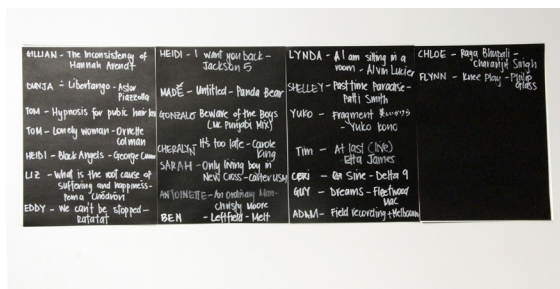 GILLIAN - The Inconsistency of
Hannah Arendt
DUNJA - Libertango - Astor
Piazzolla
TOM - Hypnosis for pubic hair loss
TOM - Lonely woman - Ornette
Colman
HEIDI - Black Angels - George Crumb
LIZ - What is the root cause of
suffering and happiness -
Pema Chödrön
EDDY - We can't be stopped -
Ratatat
HEIDI - I want you back -
Jackson 5
MADÉ - Untitled - Panda Bear
GONZALO Beware of the Boys
(UK Punjabi Mix)
CHERALYN It's too late - Carole
King
SARAH - Only living boy in
New Cross - Carter USM
ANTOINETTE - An ordinary Man -
Christy Moore
BEN - Leftfield - Melt
LYNDA - A I am sitting in a
room - Alvin Lucier
SHELLEY - Pastime Paradise -
Patti Smith
YUKO - Fragment
- Yuko Kono
TIM - At last (live)
Etta James
CERI - Stine - Delta 9
GUY - Dreams - Fleetwood
Mac
ADAM - Field Recording + Melbourne
CHLOE - Raga Bhupali -
Charanjit Singh
FLYNN - Knee Play - Philip
Glass